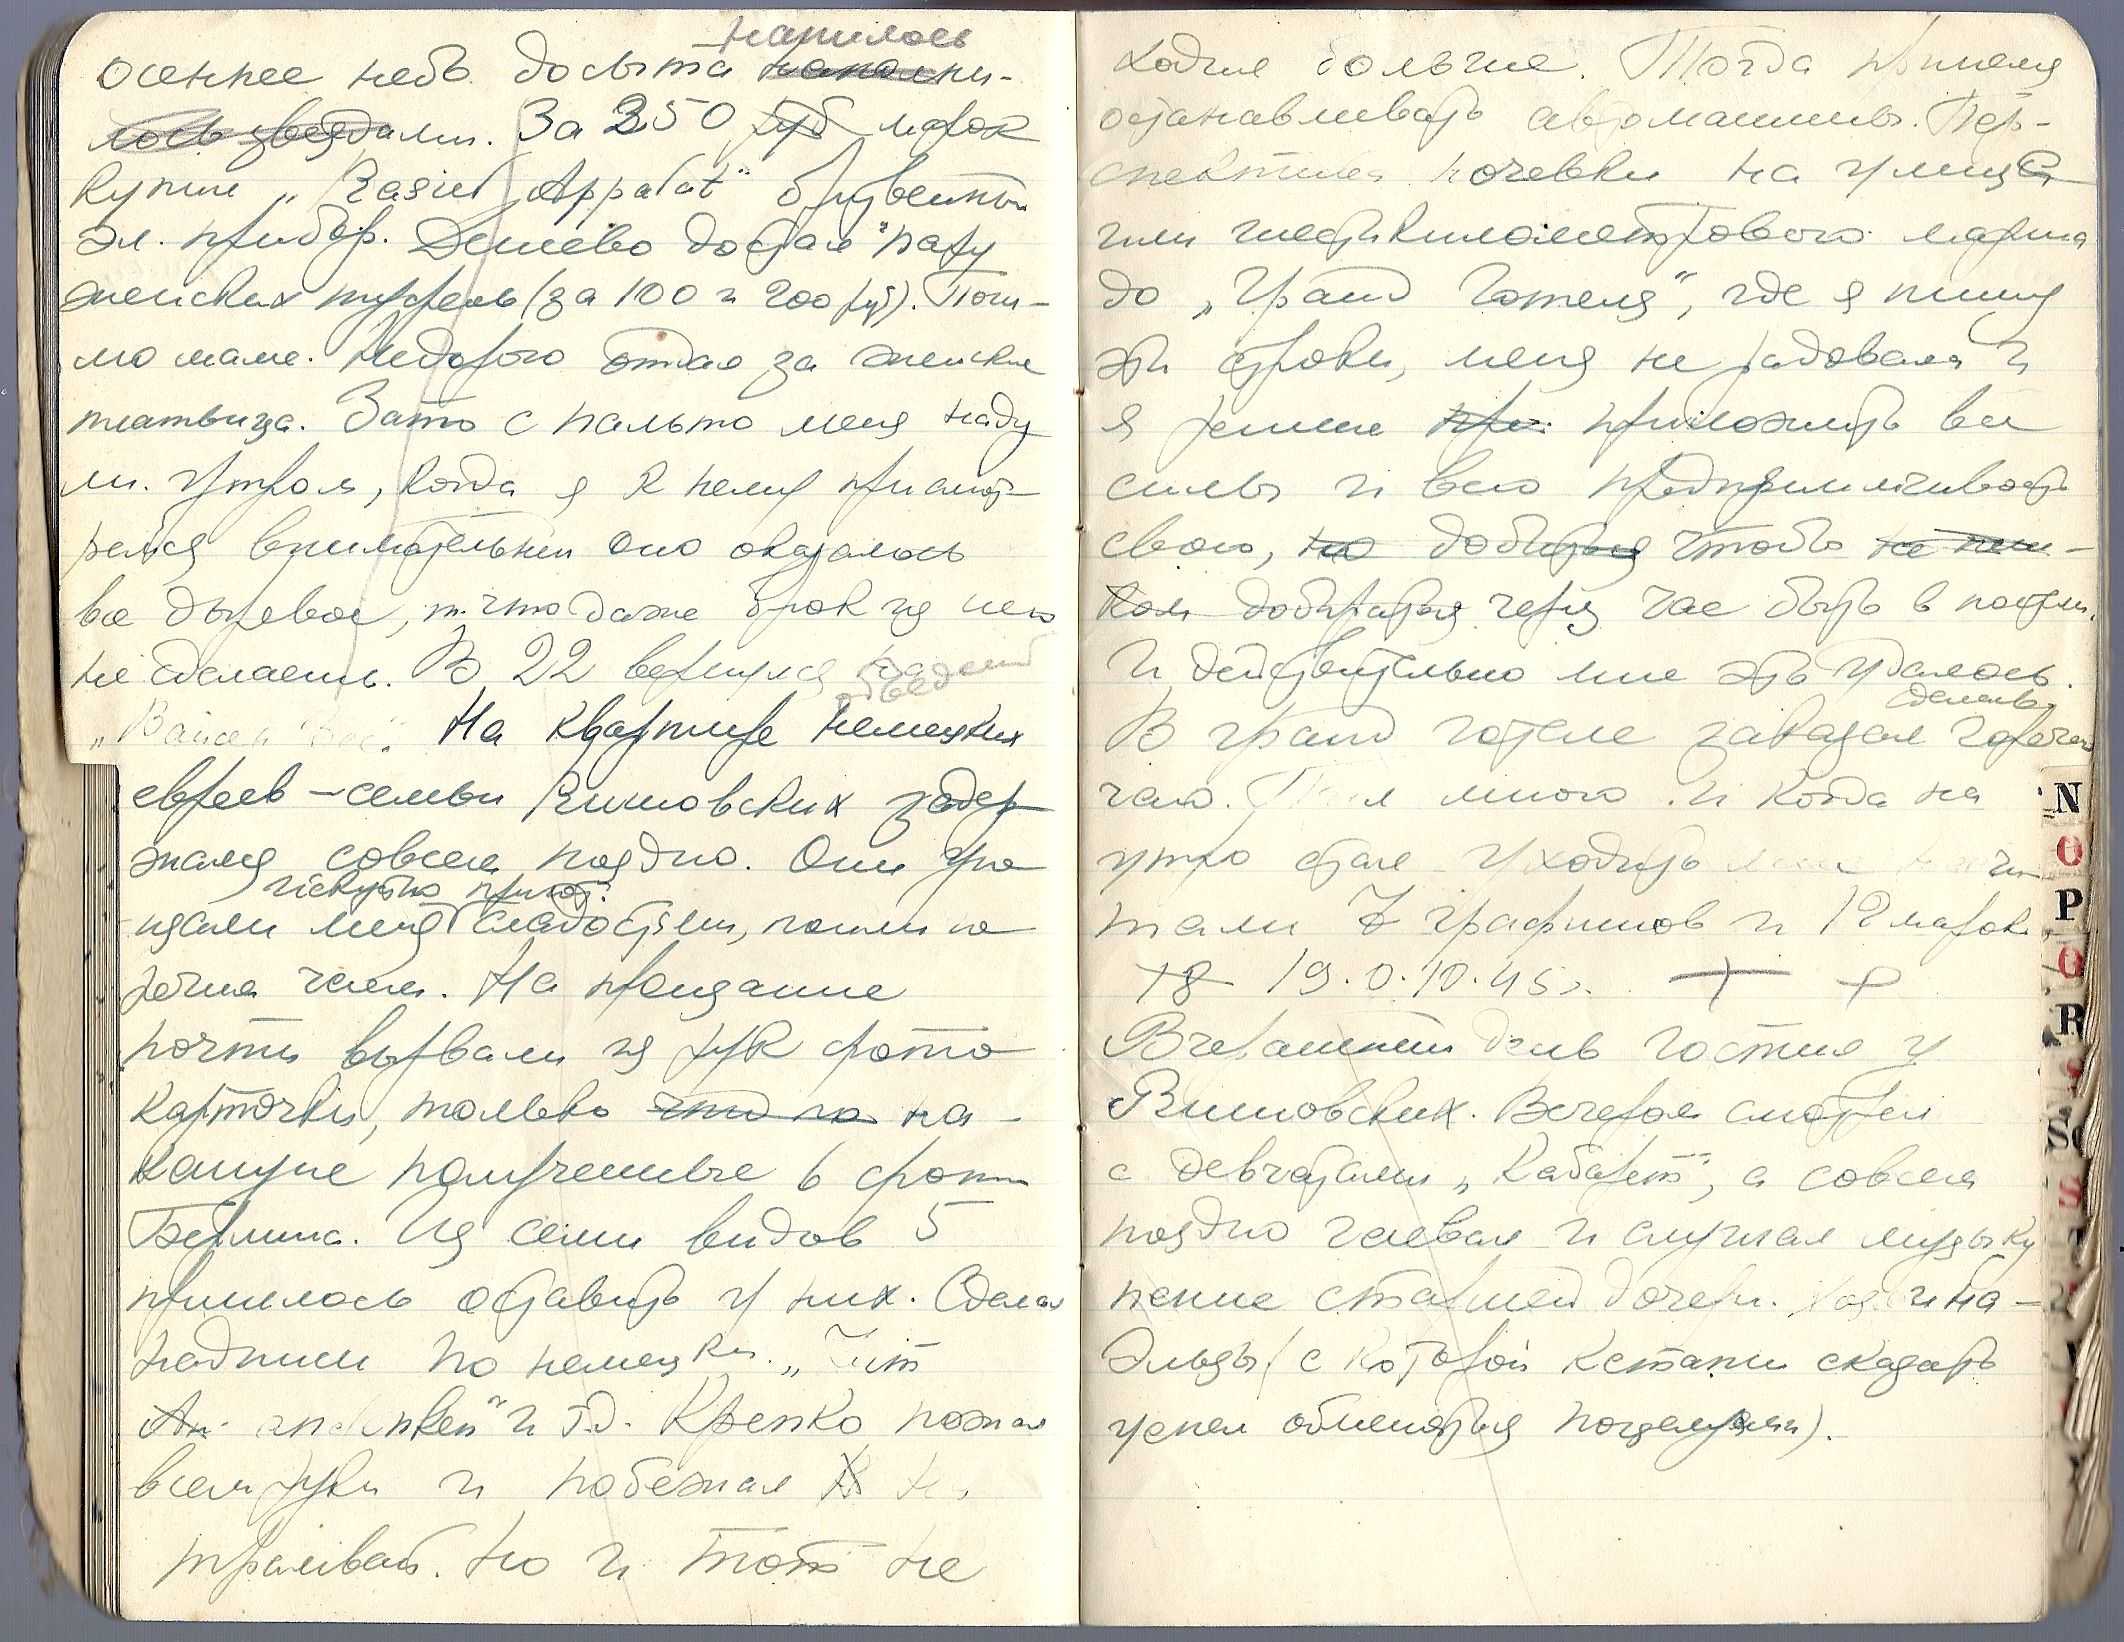 напилось
осеннее небо досыта наполни-
лось звездами. За 250 руб марок
купил „Rasier Apparat" бритвенный
эл. прибор. Дешево достал пару
женских туфель (за 100 и 200 руб). Пошлю
маме. Недорого отдал за женские
платьица. Зато с пальто меня наду
ли. Утром, когда я к нему присмот-
релся внимательнее оно оказалось
все дырявое, т. что даже брюк из него
не сделаешь. В 22 вернулся на
„Вайсен Зее". На квартире немецких
евреев – семьи Ришовских задер
жался совсем поздно. Они уго
искусно пригот.
щали меня сладостями, поили го
рячим чаем. На прощание
почти вырвали из рук фото
карточки, только что по на-
кануне полученные в фото
Берлина. Из семи видов 5
пришлось оставить у них. Сделал
надписи по немецки. „Цит
Ан анденкен" и т.д. Крепко пожал
всем руки и побежал к
трамваю. Но и тот не
ходил больше. Тогда я принялся
останавливать автомашины. Пер-
спектива ночевки на улице
или шестикилометрового марша
до „Гранд Готеля", где я пишу
эти строки, меня не радовала и
я решил при приложить все
силы и всю предприимчивость
свою, но добиться чтобы не пеш-
ком добираться через час быть в постели.
И действительно мне это удалось.
сделать
В гранд готеле заказал горячего
чаю. Пил много и когда на
утро стал уходить
тали 7 графинов и 12 марок
18 19.0.10.45г.
Вчерашний день гостил у
Ришовских. Вечером смотрел
с девчатами „Кабарет", а совсем
поздно чаевал и слушал музыку
пение старшей дочери. и на-
Эльзы (с которой кстати сказать
успел обменяться поцелуями).